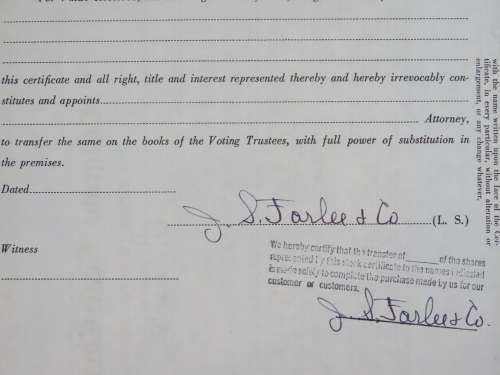 this certificate and all right, title and interest represented thereby and hereby irrevocably con-
stitutes and appoints
Attorney,
to transfer the same on the books of the Voting Trustees, with full power of substitution in
the premises.
Dated
J. S. Farlee & Co (L. S.)
Witness
We hereby certify that the transfer of ______ of the shares
represented by this stock certificate to the names indicated
is made solely to complete the purchase made by us for our
customer or customers.
J. S. Farlee & Co.
with the name written upon the face of the Cer-
tificate, in every particular, without alteration or
enlargement, or any change whatever.